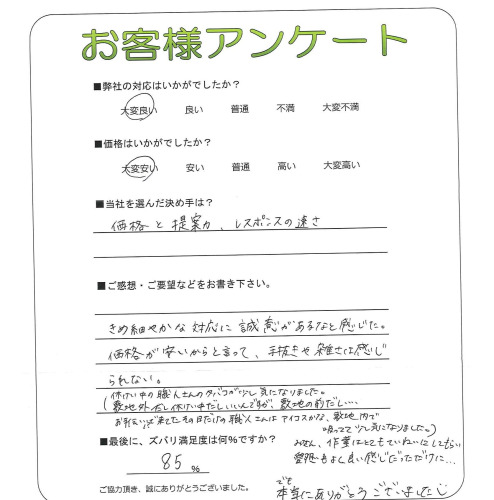 お客様アンケート
■弊社の対応はいかがでしたか？
大変良い 良い 普通 不満 大変不満
■価格はいかがでしたか？
大変安い 安い 普通 高い 大変高い
■当社を選んだ決め手は？
価格と提案力、レスポンスの速さ
■ご感想・ご要望などをお書き下さい。
きめ細やかな対応に誠意があるなと感じた。
価格が安いからと言って、手抜きや雑さは感じ
られない。
(休けい中の職人さんのタバコが少し気になりました。
敷地外だし休けい中だしいいんですが、敷地の前だし…
お手伝いで来てたその日だけの職人さんはアイコスかな、敷地内で
吸ってて少し気になりました。)
みなさん、作業はとてもていねいにしてもらい
愛想もよく良い感じだっただけに…
■最後に、ズバリ満足度は何%ですか？
85 %
でも
本当にありがとうございました
ご協力頂き、誠にありがとうございました。